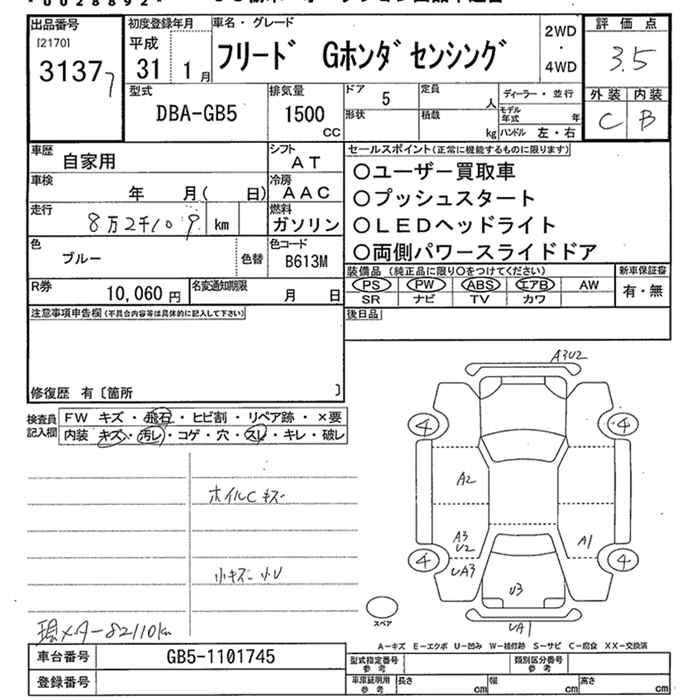 * 0 0 2 8 8 9 2 *
出品番号 初度登録年月 車名・グレード 2WD・4WD 評価点
[2170] 平成 フリード Gホンダセンシング 3.5
3137 31年 1月
7
外装 内装
C B
型式 排気量 ドア 定員 ディーラー・並行
DBA-GB5 1500 CC 5 人 モデル年式 年
形状 積載 kg ハンドル 左・右
車歴 シフト セールスポイント(正常に機能するものに限ります)
自家用 AT ○ユーザー買取車
車検 冷房 ○プッシュスタート
年 月( 日) AAC
走行 燃料 ○LEDヘッドライト
8万2千10 km ガソリン
色 色コード ○両側パワースライドドア
ブルー 色替 B613M
装備品(純正品に限り○をつけてください) 新車保証書
R券 名変通知期限 PS PW ABS エアB AW 有・無
10,060円 月 日 SR ナビ TV カワ
注意事項申告欄(不具合内容等は具体的に記入して下さい) 後日品
修復歴 有〔箇所 〕
検査員記入欄 FW キズ・飛石・ヒビ割・リペア跡・×要
内装 キズ・汚レ・コゲ・穴・スレ・キレ・破レ
ホイルCキズ
小キズ 小U
現メーター82110km
A3U2
4 4
A2
A3
U2
UA3
A1
4 4
U3
UA1
スペア
A-キズ E-エクボ U-凹み W-補修跡 S-サビ C-腐食 XX-交換済
車台番号 GB5-1101745 型式指定番号参考 類別区分番号参考
登録番号 車庫証明用参考 長さ cm 幅 cm 高さ cm